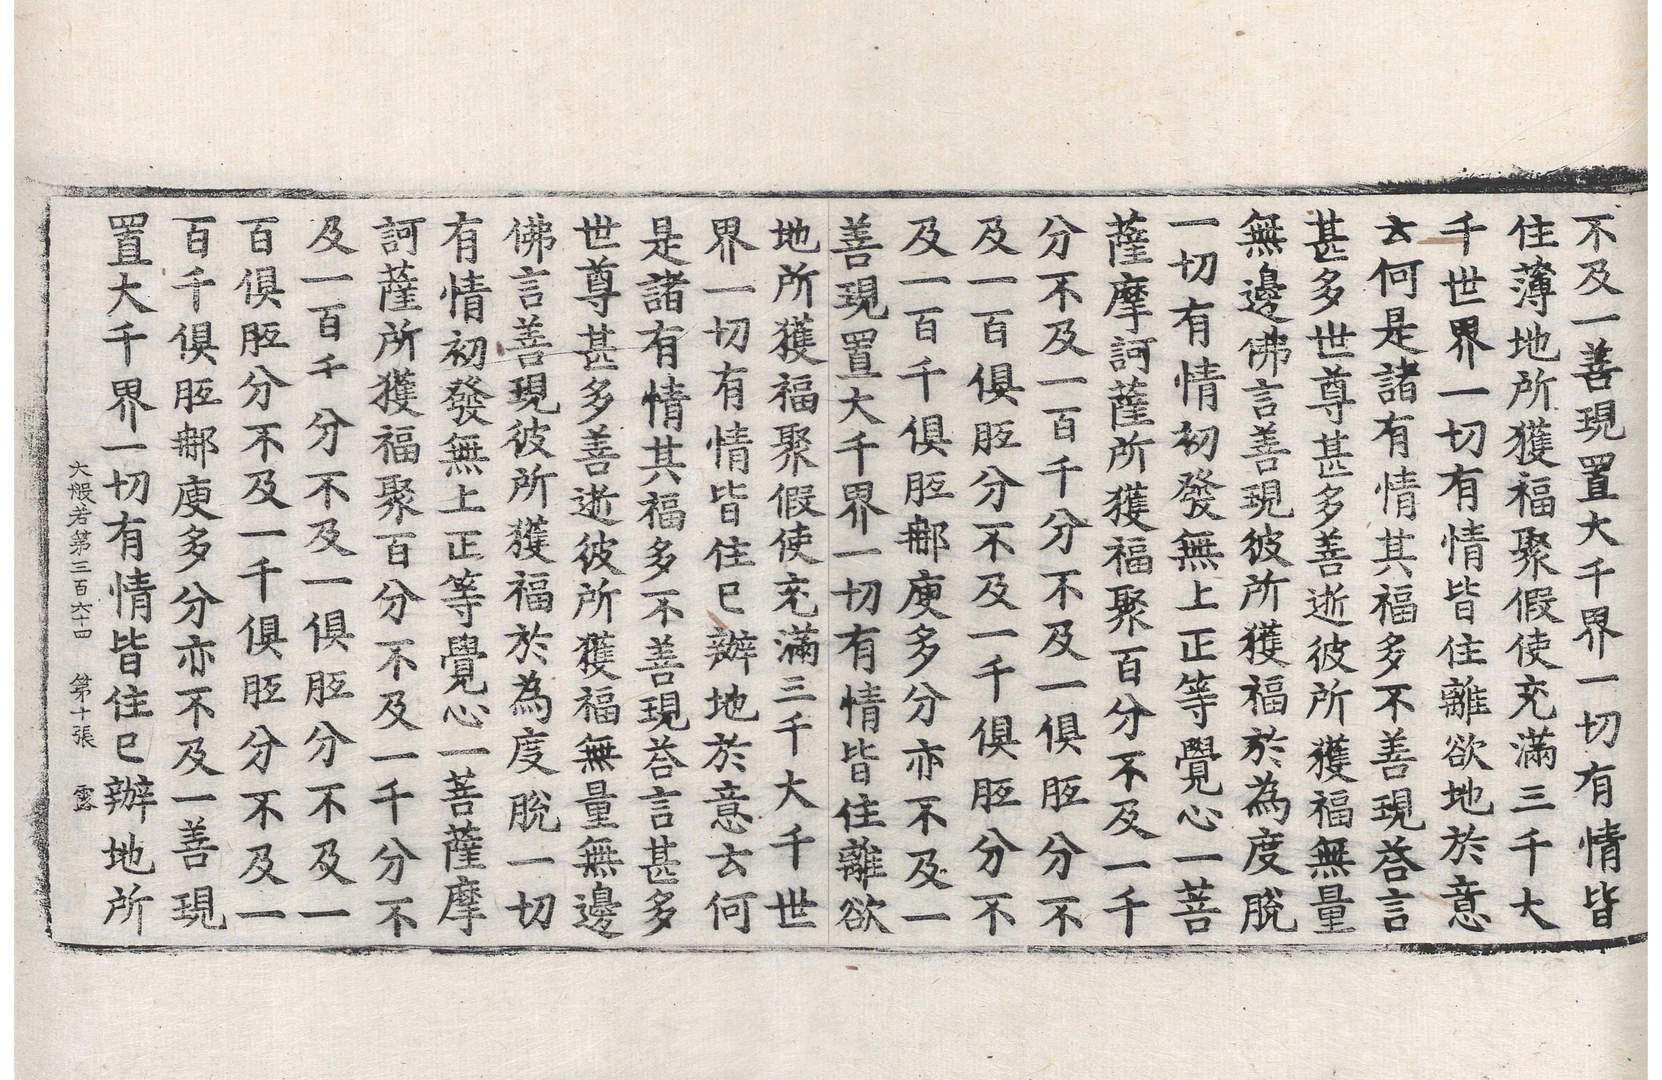 不及一善現置大千界一切有情皆
住薄地所獲福聚假使充滿三千大
千世界一切有情皆住離欲地於意
云何是諸有情其福多不善現荅言
甚多世尊甚多善逝彼所獲福無量
無邊佛言善現彼所獲福於為度脫
一切有情初發無上正等覺心一菩
薩摩訶薩所獲福聚百分不及一千
分不及一百千分不及一俱胝分不
及一百俱胝分不及一千俱胝分不
及一百千俱胝𨚗庾多分亦不及一
善現置大千界一切有情皆住離欲
地所獲福聚假使充滿三千大千世
界一切有情皆住已辦地於意云何
是諸有情其福多不善現荅言甚多
世尊甚多善逝彼所獲福無量無邊
佛言善現彼所獲福於為度脫一切
有情初發無上正等覺心一菩薩摩
訶薩所獲福聚百分不及一千分不
及一百千分不及一俱胝分不及一
百俱胝分不及一千俱胝分不及一
百千俱胝𨚗庾多分亦不及一善現
置大千界一切有情皆住已辦地所
大般若第三百六十四 第十張 露